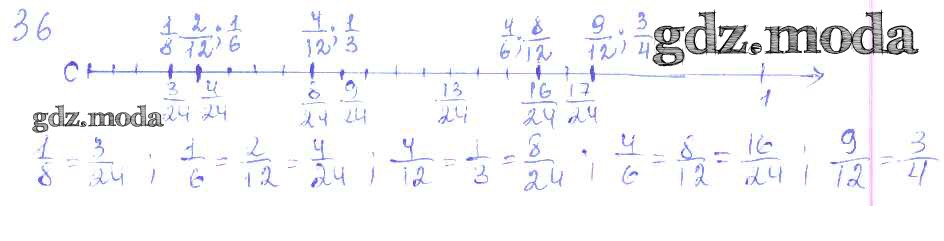 36
1/8 2/12; 1/6 4/12; 1/3 4/6; 8/12 9/12; 3/4 gdz.moda
0
3/24 4/24 8/24 9/24 13/24 16/24 17/24 1
gdz.moda
1/8 = 3/24; 1/6 = 2/12 = 4/24; 4/12 = 1/3 = 8/24; 4/6 = 8/12 = 16/24; 9/12 = 3/4